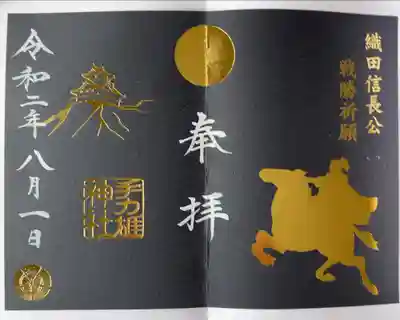 織田信長公
戦勝祈願
奉拝
手力雄
神社
令和二年八月一日